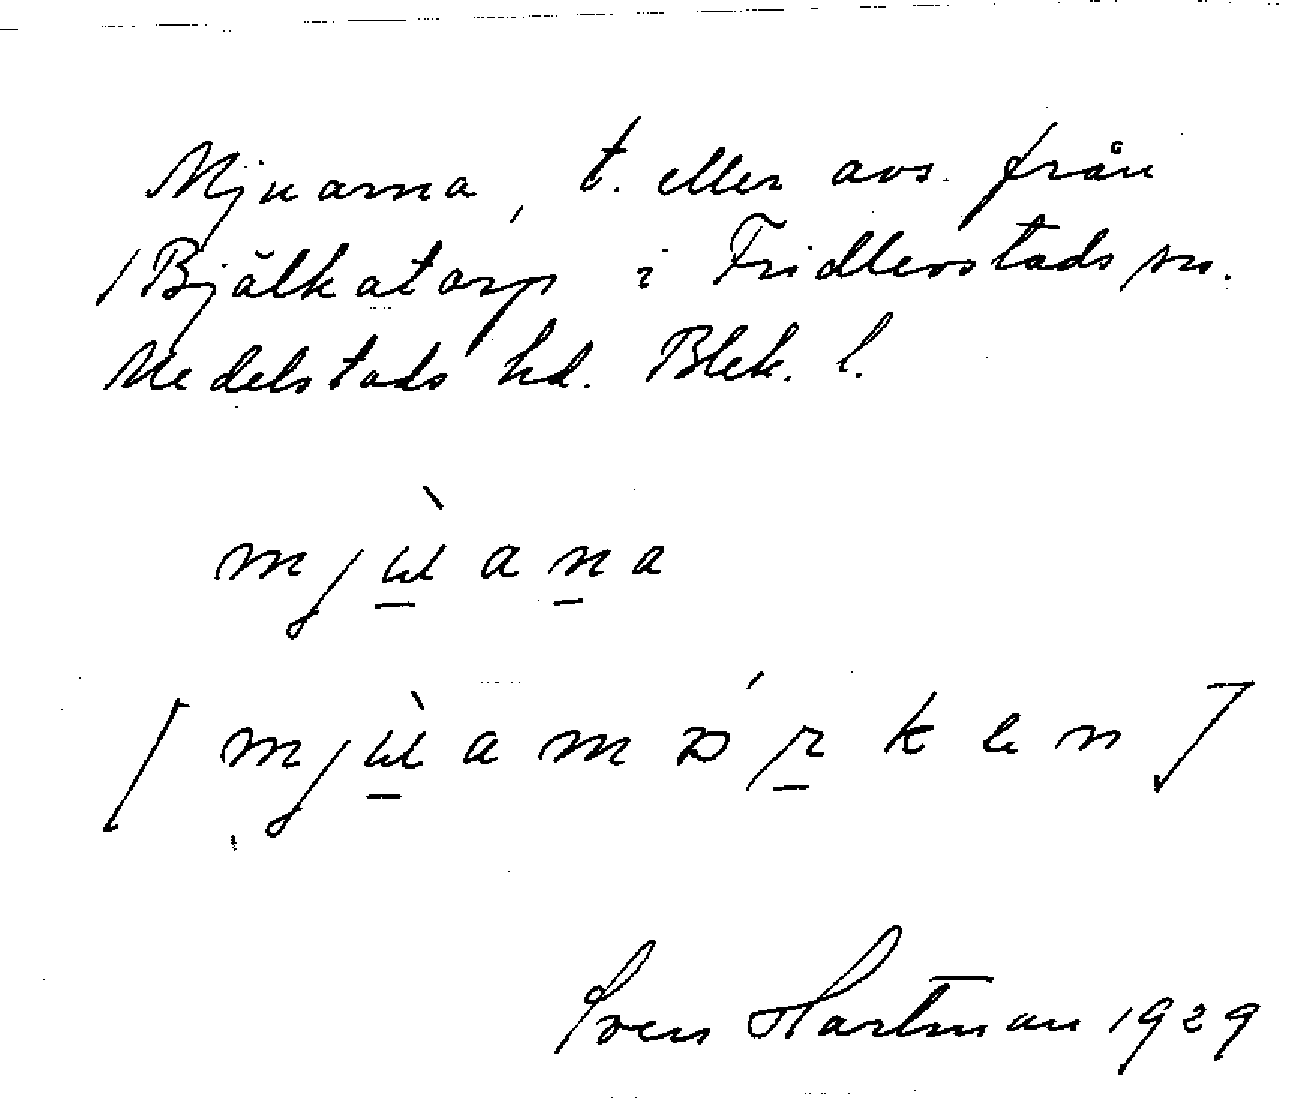 Mjuarna, t. eller avs. från
/Bjälkatorp i Fridlevstads sn.
Medelstads hd. Blek. l.
mjɯ̱̀ana̱
[mjɯ̱̀amɔ́ṟken]
Sven Hartman 1929